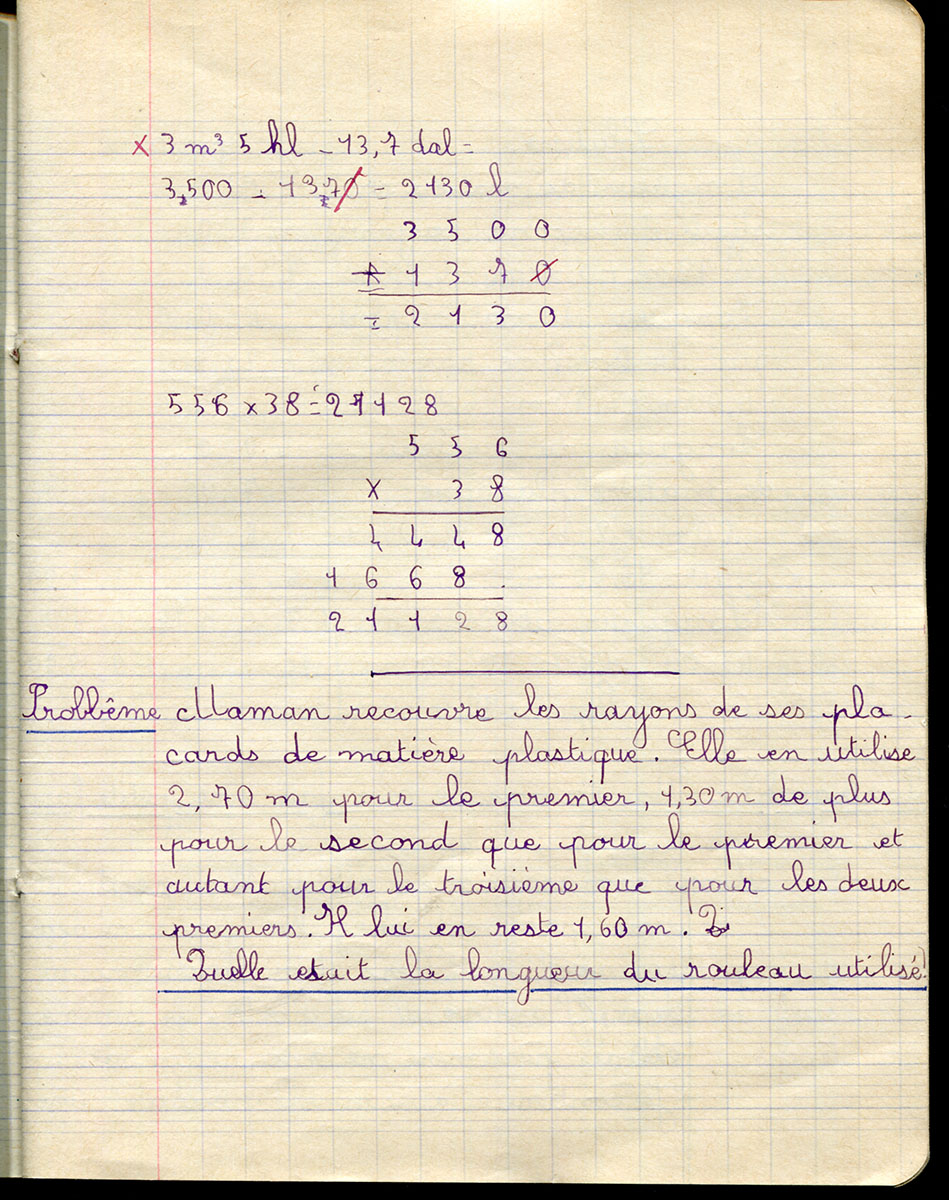 x 3 m³ 5 hl - 13,7 dal =
3,500 - 13,70 = 2130 l
3 5 0 0
- 1 3 7 0
= 2 1 3 0
556 x 38 = 21128
5 5 6
x 3 8
4 4 4 8
1 6 6 8 .
2 1 1 2 8
Problême Maman recouvre les rayons de ses pla-
cards de matière plastique. Elle en utilise
2,70 m pour le premier, 1,30 m de plus
pour le second que pour le premier et
autant pour le troisième que pour les deux
premiers. Il lui en reste 1,60 m.
Quelle etait la longueur du rouleau utilisé?